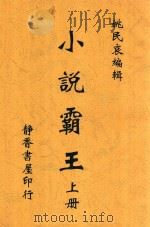 姚民哀編輯
小說霸王
上册
靜香書屋印行
www.duxiu.com